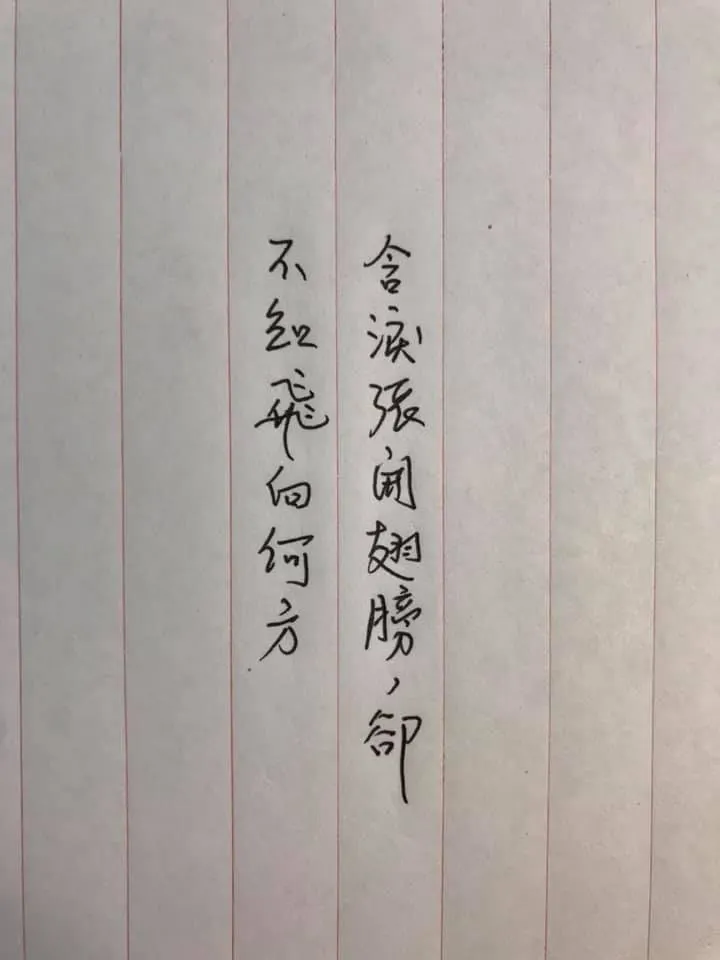 含淚張開翅膀，卻
不知飛向何方